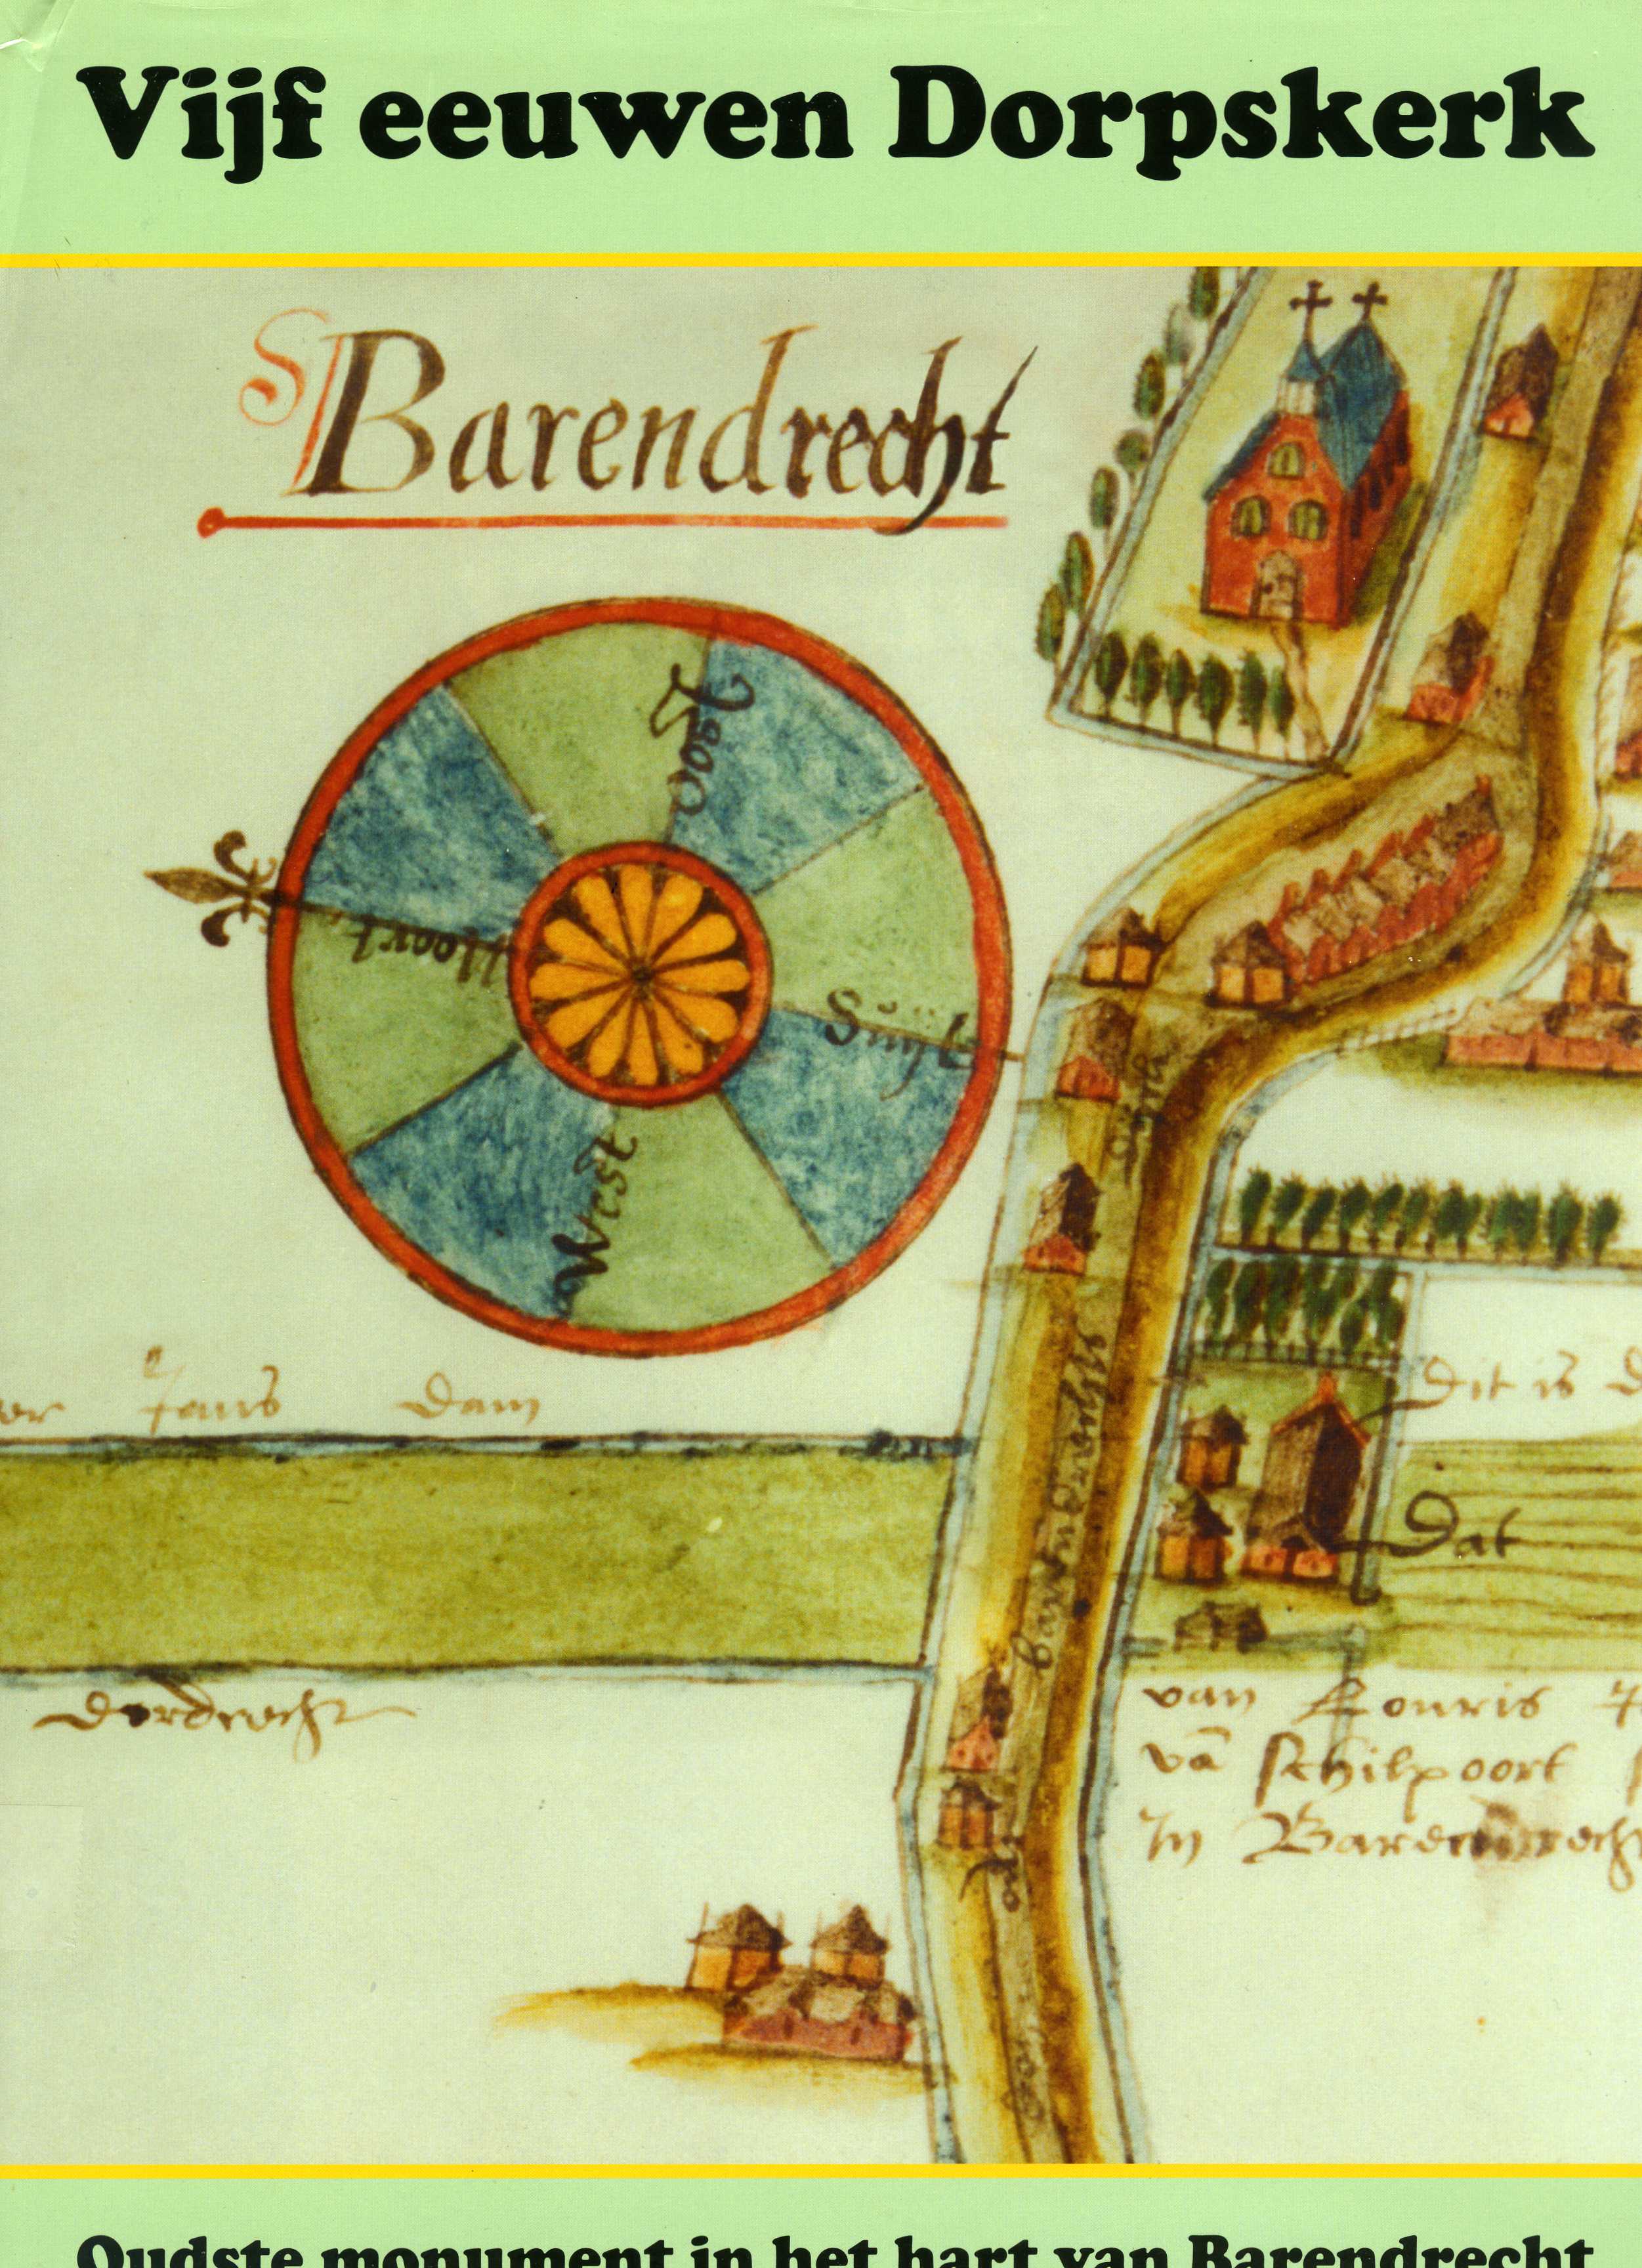 Vijf eeuwen Dorpskerk
S Barendrecht
Oost
Noort
Suijt
West
Jans dam
Dit is
Dat
dordrecht
van Louris
vā schilpoort
In Barendrecht
Oudste monument in het hart van Barendrecht